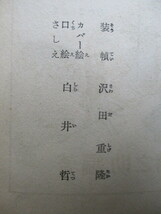 装幀　沢田重隆
カバー絵
口絵
さしえ
白井　哲